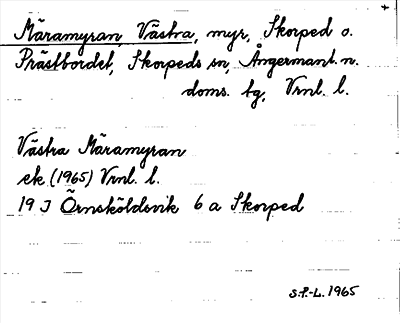 Märamyran, Västra, myr, Skorped o.
Prästbordet, Skorpeds sn, Ångermanl. n.
doms. tg, Vrnl. l.
Västra Märamyran
ek (1965) Vrnl. l.
19 J Örnsköldsvik 6 a Skorped
S.P.-L. 1965